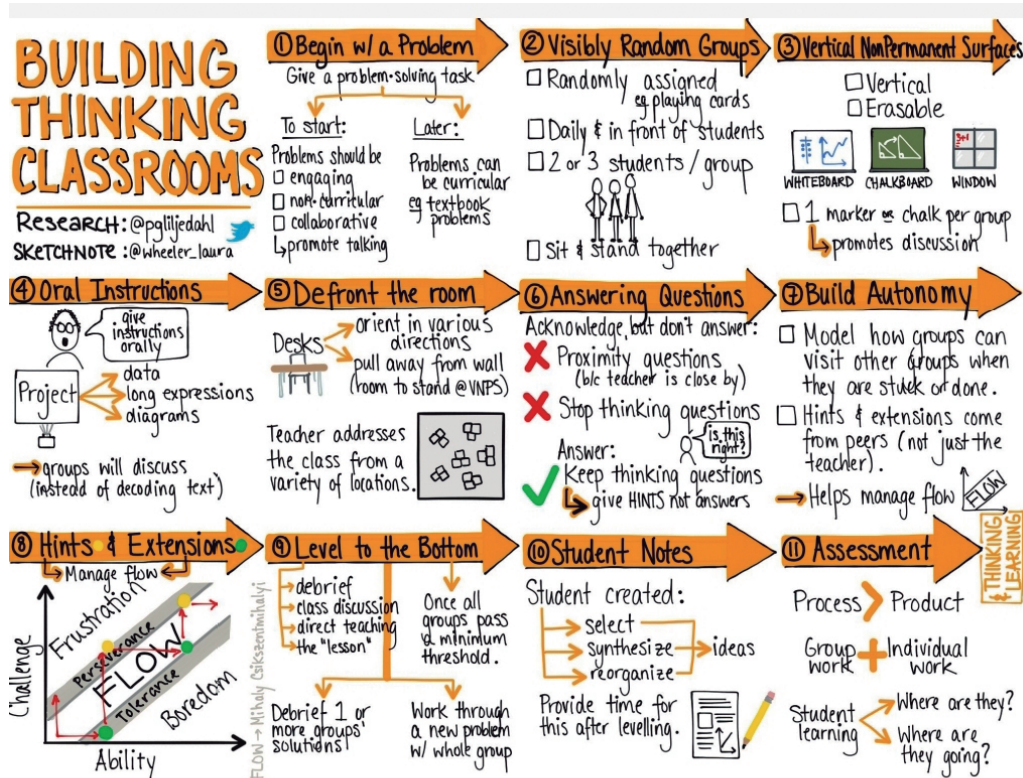 BUILDING
THINKING
CLASSROOMS
RESEARCH: @pgliljedahl
SKETCHNOTE: @wheeler_laura
① Begin w/ a Problem
Give a problem-solving task
To start:
Problems should be
engaging
non-curricular
collaborative
↳ promote talking
Later:
Problems can
be curricular
eg textbook
problems
② Visibly Random Groups
Randomly assigned
eg playing cards
Daily & in front of students
2 or 3 students / group
Sit & stand together
③ Vertical NonPermanent Surfaces
Vertical
Erasable
3+1
WHITEBOARD
CHALKBOARD
WINDOW
1 marker or chalk per group
promotes discussion
④ Oral Instructions
give
instructions
orally
Project
data
long expressions
diagrams
→ groups will discuss
(instead of decoding text)
⑤ Defront the room
Desks
orient in various
directions
pull away from wall
(room to stand @VNPS)
Teacher addresses
the class from a
variety of locations.
⑥ Answering Questions
Acknowledge, but don't answer:
Proximity questions
(b/c teacher is close by)
Stop thinking questions
is this
right?
Answer:
Keep thinking questions
give HINTS not answers
⑦ Build Autonomy
Model how groups can
visit other groups when
they are stuck or done.
Hints & extensions come
from peers (not just the
teacher).
→ Helps manage flow
FLOW
⑧ Hints & Extensions
Manage flow
Challenge
Frustration
Perseverance
FLOW
Tolerance
Boredom
Ability
FLOW → Mihaly Csikszentmihalyi
⑨ Level to the Bottom
debrief
class discussion
direct teaching
the "lesson"
Once all
groups pass
a minimum
threshold.
Debrief 1 or
more groups'
solutions
Work through
a new problem
w/ whole group
⑩ Student Notes
Student created:
select
synthesize
reorganize
ideas
Provide time for
this after levelling.
⑪ Assessment
THINKING
& LEARNING
Process > Product
Group
work
+
Individual
work
Student
learning
Where are they?
Where are
they going?